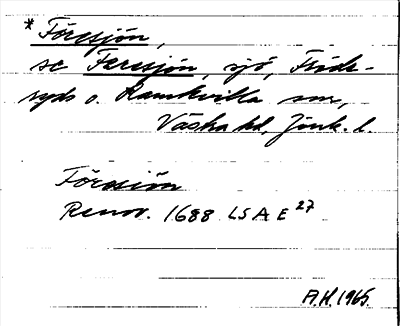 * Föresjön,
se Feresjön, sjö, Fröde-
ryds o. Ramkvilla snr,
Västra hd, Jönk. l.
Förasiön
Renov. 1688 LSA E 27
A.H. 1965.